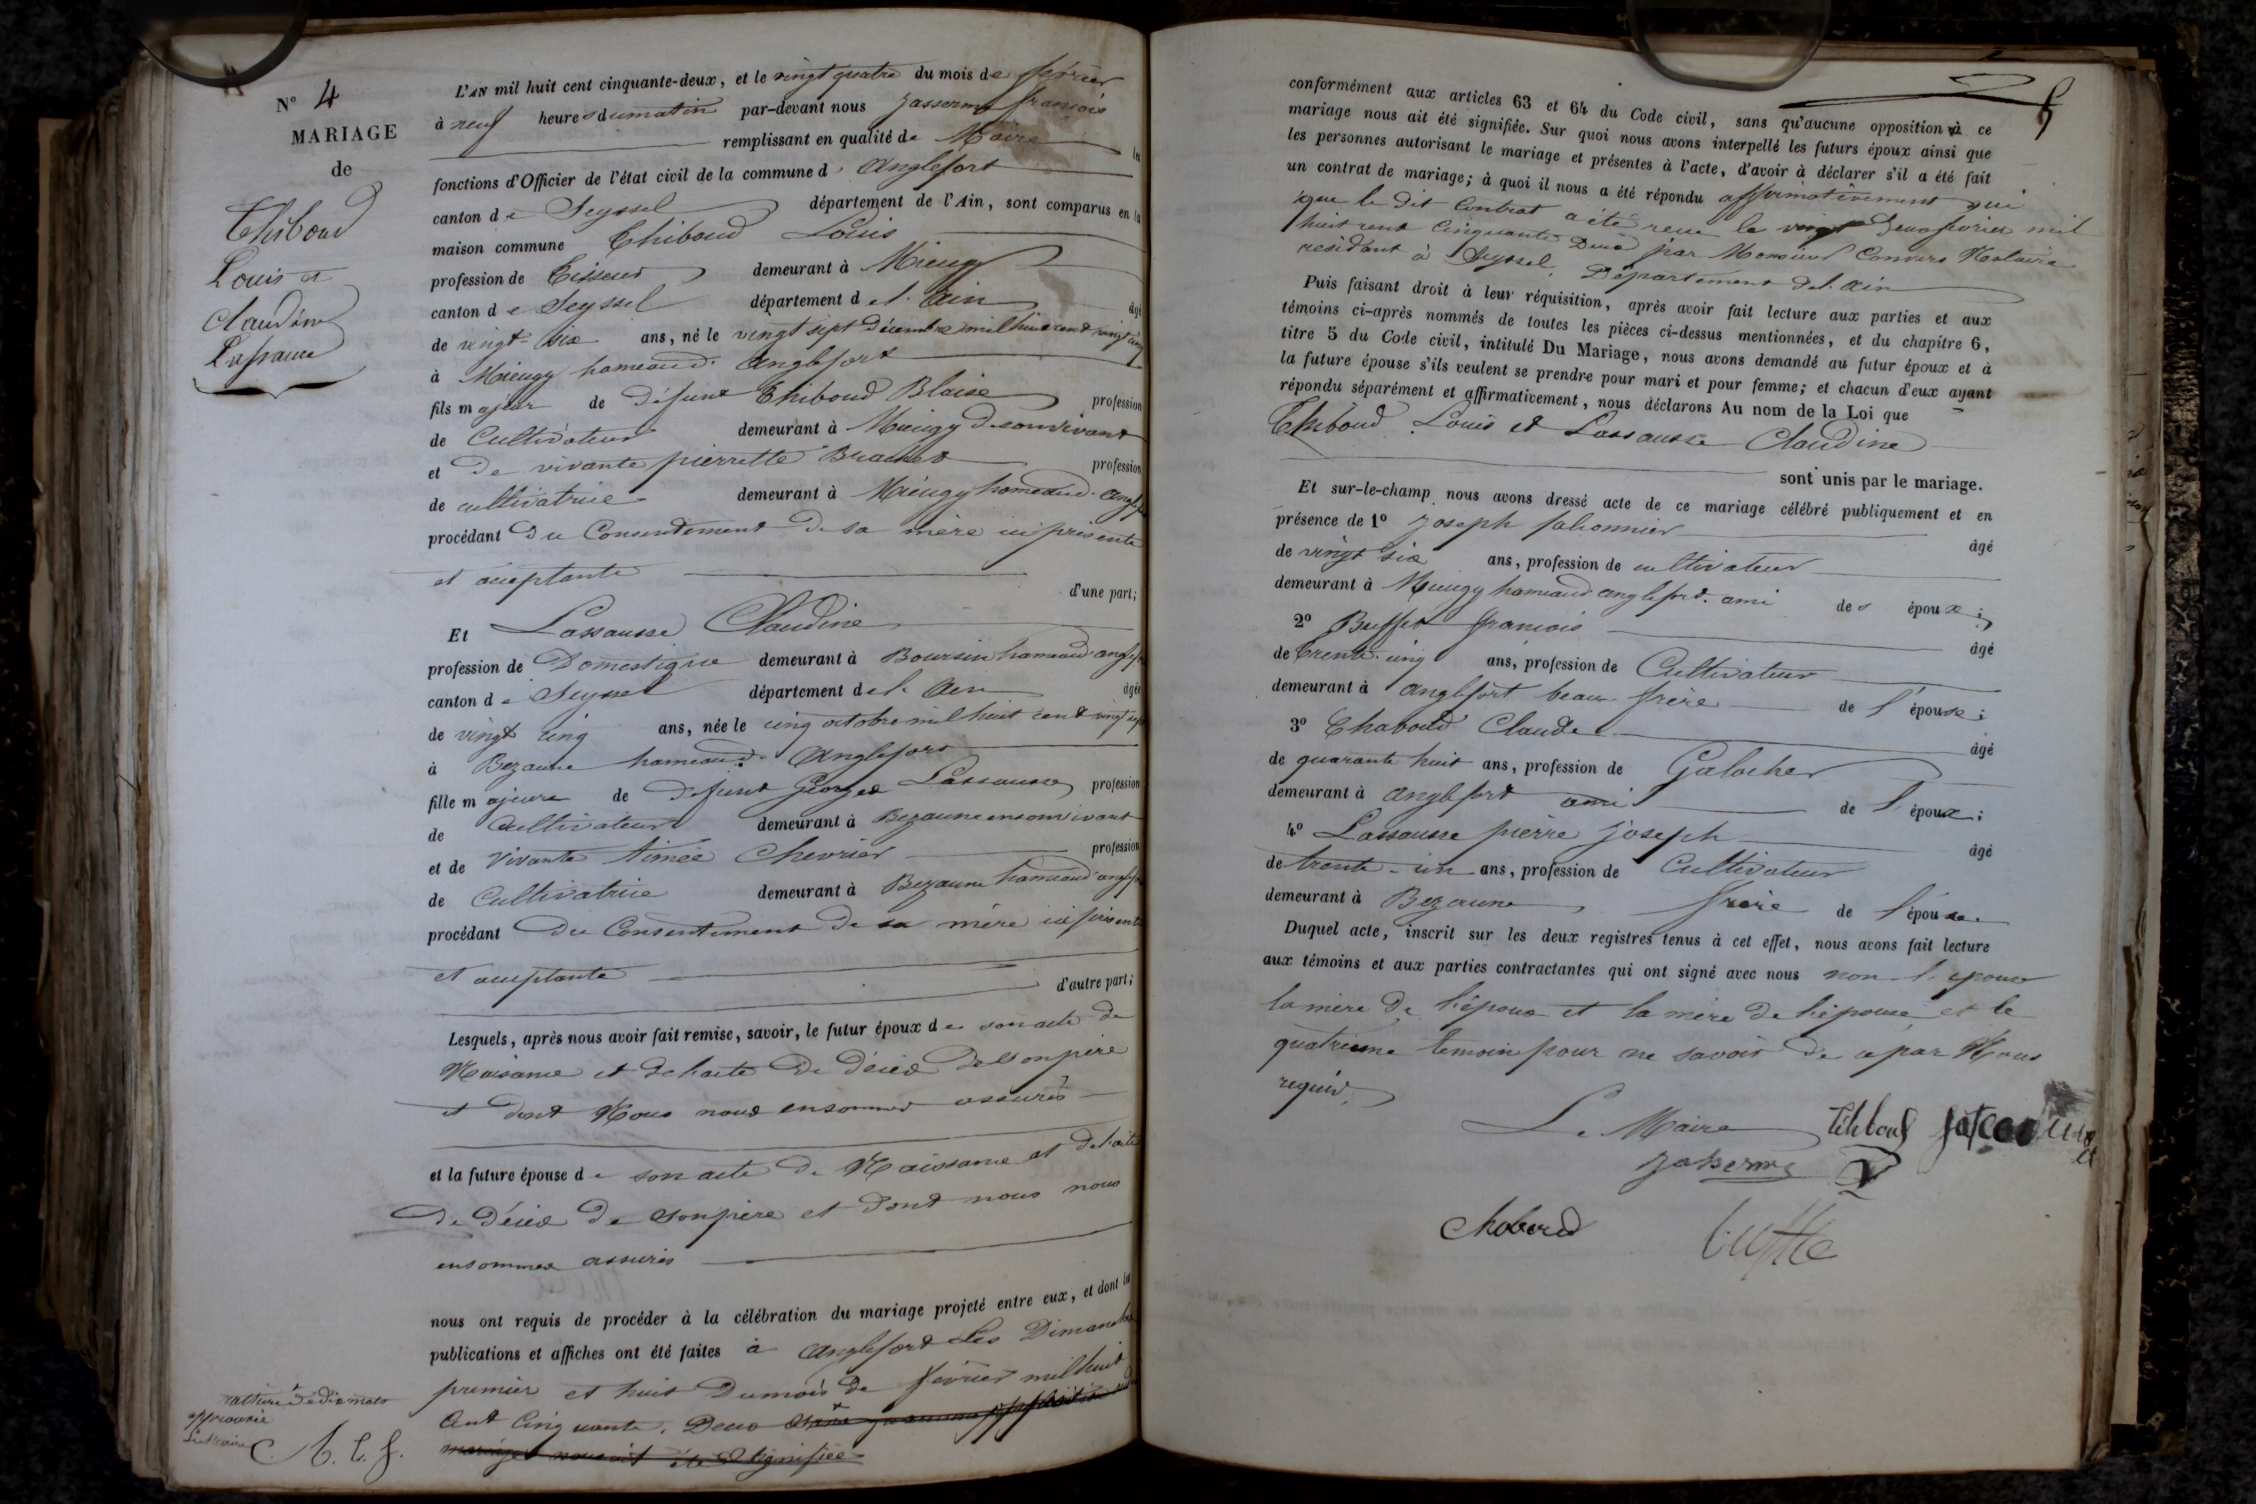 N° 4
MARIAGE
de
Thiboud
Louis et
Claudine
Lassausse
L'AN mil huit cent cinquante-deux, et le vingt quatre du mois de février
à neuf heures du matin par-devant nous Jasserme françois
remplissant en qualité de Maire les
fonctions d'Officier de l'état civil de la commune d' Anglefort
canton de Seyssel département de l'Ain, sont comparus en la
maison commune Thiboud Louis
profession de Tisseur demeurant à Mieugy
canton de Seyssel département de l'ain âgé
de vingt-six ans, né le vingt sept décembre mil huit cent vingt cinq
à Mieugy hameau d' Anglefort
fils majeur de défunt Thiboud Blaise profession
de Cultivateur demeurant à Mieugy de son vivant
et de vivante pierrette Brachet profession
de cultivatrice demeurant à Mieugy hameau d'Anglefort
procédant du Consentement de sa mère ici présente
et acceptante
d'une part;
Et Lassausse Claudine
profession de Domestique demeurant à Boursin hameaud anglefort
canton de Seyssel département de l'Ain âgée
de vingt cinq ans, née le cinq octobre mil huit cent vingt six
à Bezaune hameau d' Anglefort
fille majeure de défunt Georges Lassausse profession
de Cultivateur demeurant à Bezaune en son vivant
et de vivante Aimée Chevrier profession
de Cultivatrice demeurant à Bezaune hameaud anglefort
procédant du Consentement de sa mère ici présente
et acceptante
d'autre part;
Lesquels, après nous avoir fait remise, savoir, le futur époux de son acte de
Naisance et de l'acte de décès de son père
et dont Nous nous en sommes assurés
et la future épouse de son acte de Naissance et de l'acte
de décès de son père et dont nous nous
en sommes assurés
nous ont requis de procéder à la célébration du mariage projeté entre eux, et dont les
publications et affiches ont été faites à Anglefort Les Dimanches
premier et huit du mois de février mil huit
Cent Cinquante Deux
mariage nous ait été signifiée
rature de dix mots
approuvée
conformément aux articles 63 et 64 du Code civil, sans qu'aucune opposition à ce
mariage nous ait été signifiée. Sur quoi nous avons interpellé les futurs époux ainsi que
les personnes autorisant le mariage et présentes à l'acte, d'avoir à déclarer s'il a été fait
un contrat de mariage; à quoi il nous a été répondu affirmativement qui
que le dit Contrat a été reçu le vingt Deux février mil
huit cent Cinquante Deux par Monsieur Convers Notaire
residant à Seyssel, Département de l'ain
Puis faisant droit à leur réquisition, après avoir fait lecture aux parties et aux
témoins ci-après nommés de toutes les pièces ci-dessus mentionnées, et du chapitre 6,
titre 5 du Code civil, intitulé Du Mariage, nous avons demandé au futur époux et à
la future épouse s'ils veulent se prendre pour mari et pour femme; et chacun d'eux ayant
répondu séparément et affirmativement, nous déclarons Au nom de la Loi que
Thiboud Louis et Lassausse Claudine
sont unis par le mariage.
Et sur-le-champ nous avons dressé acte de ce mariage célébré publiquement et en
présence de 1° Joseph falconnier âgé
de vingt six ans, profession de cultivateur
demeurant à Mieugy hameaud anglefort ami des époux;
2° Buffet françois âgé
de trente-cinq ans, profession de Cultivateur
demeurant à anglefort beau frère de l'épouse;
3° Chaboud Claude âgé
de quarante huit ans, profession de Galocher
demeurant à anglefort ami de l'époux;
4° Lassausse pierre joseph âgé
de trente-un ans, profession de Cultivateur
demeurant à Bezaune frère de l'épouse.
Duquel acte, inscrit sur les deux registres tenus à cet effet, nous avons fait lecture
aux témoins et aux parties contractantes qui ont signé avec nous non l'epouse
la mère de l'époux et la mère de l'épouse et le
quatrieme temoin pour ne savoir de ce par Nous
requis
Le Maire
Thiboud
Jasserme
Chaboud